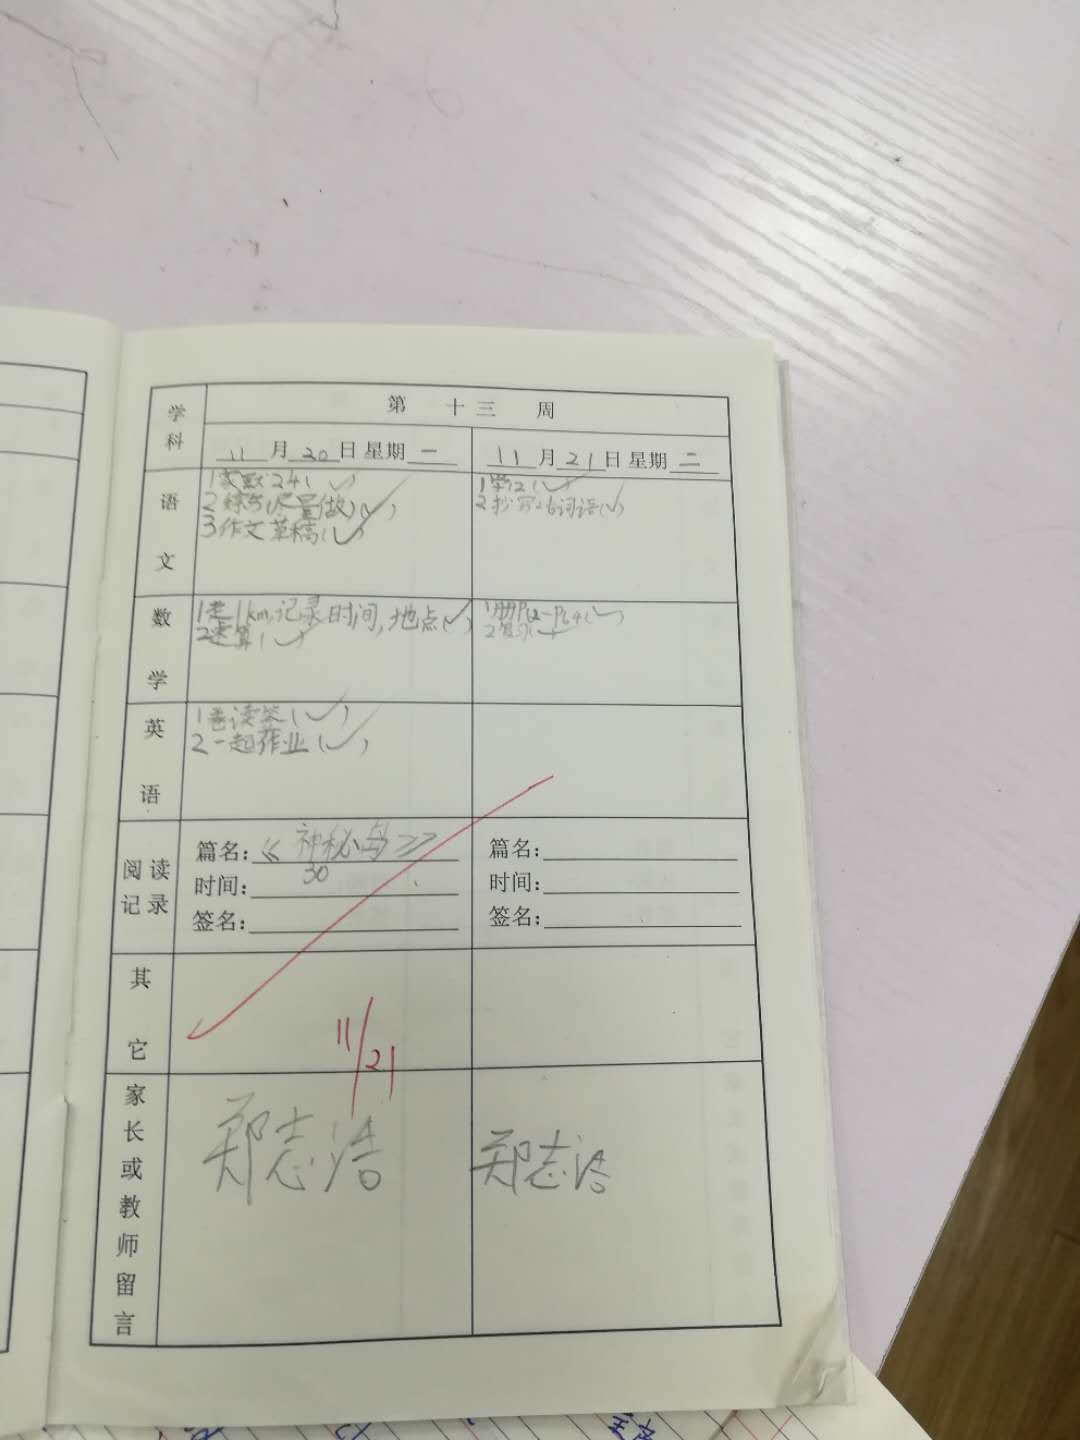 学科
第 十三 周
11月20日 星期一
11月21日 星期二
语文
1家默24(✓)
2练与(尽量做)(✓)
3作文草稿(✓)
1学12(✓)
2抄写4词语(✓)
数学
1走1km,记录时间,地点(✓)
2速算(✓)
1册P62-P64(✓)
2复习(✓)
英语
1卷读签(✓)
2一起作业(✓)
阅读记录
篇名:《神秘鸟》
时间: 30
签名:
篇名:
时间:
签名:
其它
11/21
家长或教师留言
郑志浩
郑志浩